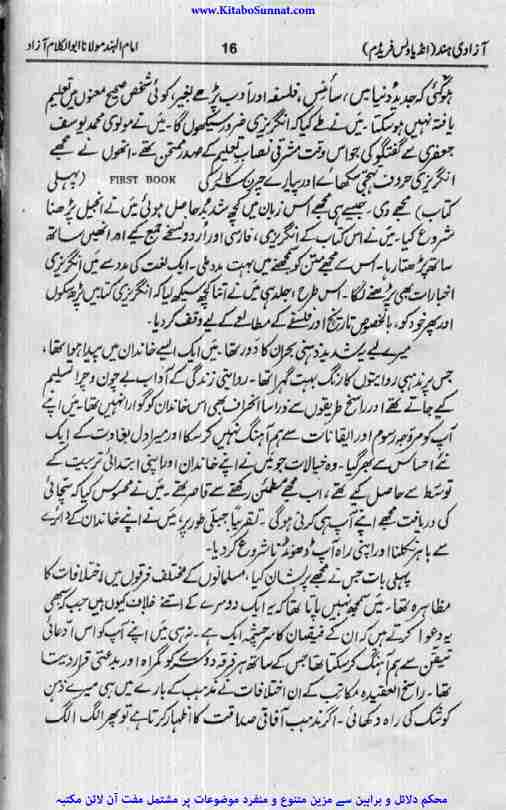 www.KitaboSunnat.com
آزادی ہند (انڈیا ونس فریڈم) 16 امام الہند مولانا ابوالکلام آزاد
ہوگئی کہ جدید دنیا میں، سائنس، فلسفہ اور ادب پڑھے بغیر، کوئی شخص صحیح معنوں میں تعلیم
یافتہ نہیں ہو سکتا۔ میں نے طے کیا کہ انگریزی ضرور سیکھوں گا۔ میں نے مولوی محمد یوسف
جعفری سے گفتگو کی جو اس وقت مشرقی نصاب تعلیم کے صدر ممتحن تھے۔ انھوں نے مجھے
انگریزی حروف تہجی سکھائے اور پیارے چرن سرکار کی FIRST BOOK (پہلی
کتاب) مجھے دی۔ جیسے ہی مجھے اس زبان میں کچھ شد بد حاصل ہوئی میں نے انجیل پڑھنا
شروع کیا۔ میں نے اس کتاب کے انگریزی، فارسی اور اُردو نسخے جمع کیے اور انھیں ساتھ
ساتھ پڑھتا رہا۔ اس سے مجھے متن کو سمجھنے میں بہت مدد ملی۔ ایک لغت کی مدد سے میں انگریزی
اخبارات بھی پڑھنے لگا۔ اس طرح جلد ہی میں نے اتنا کچھ سیکھ لیا کہ انگریزی کتابیں پڑھ سکوں
اور پھر خود کو، بالخصوص تاریخ اور فلسفے کے مطالعے کے لیے وقف کر دیا۔
میرے لیے یہ شدید ذہنی بحران کا دور تھا۔ میں ایک ایسے خاندان میں پیدا ہوا تھا،
جس پر مذہبی روایتوں کا رنگ بہت گہرا تھا۔ روایتی زندگی کے آداب بے چون و چرا تسلیم
کیے جاتے تھے اور راسخ طریقوں سے ذرا سا انحراف بھی اس خاندان کو گوارا نہیں تھا۔ میں اپنے
آپ کو مروجہ رسوم اور ایقانات سے ہم آہنگ نہیں کر سکا اور میرا دل بغاوت کے ایک
نئے احساس سے بھر گیا۔ وہ خیالات جو میں نے اپنے خاندان اور اپنی ابتدائی تربیت کے
توسط سے حاصل کیے تھے، اب مجھے مطمئن رکھنے سے قاصر تھے۔ میں نے محسوس کیا کہ سچائی
کی دریافت مجھے اپنے آپ ہی کرنی ہوگی۔ تقریباً جبلی طور پر، میں نے اپنے خاندان کے دائرے
سے باہر نکلنا اور اپنی راہ آپ ڈھونڈنا شروع کر دیا۔
پہلی بات جس نے مجھے پریشان کیا، مسلمانوں کے مختلف فرقوں میں اختلافات کا
مظاہرہ تھا۔ میں سمجھ نہیں پاتا تھا کہ یہ ایک دوسرے کے اتنے خلاف کیوں ہیں جب کہ سبھی
یہ دعوا کرتے ہیں کہ ان کے فیضان کا سرچشمہ ایک ہے۔ نہ ہی میں اپنے آپ کو اس ادعائی
تیقن سے ہم آہنگ کر سکتا تھا جس کے ساتھ ہر فرقہ دوسرے کو گمراہ اور بدعتی قرار دیتا
تھا۔ راسخ العقیدہ مکاتب کے ان اختلافات نے مذہب کے بارے میں ہی میرے ذہن
کو شک کی راہ دکھائی۔ اگر مذہب آفاقی صداقت کا اظہار کرتا ہے تو پھر الگ الگ
محکم دلائل و براہین سے مزین متنوع و منفرد موضوعات پر مشتمل مفت آن لائن مکتبہ